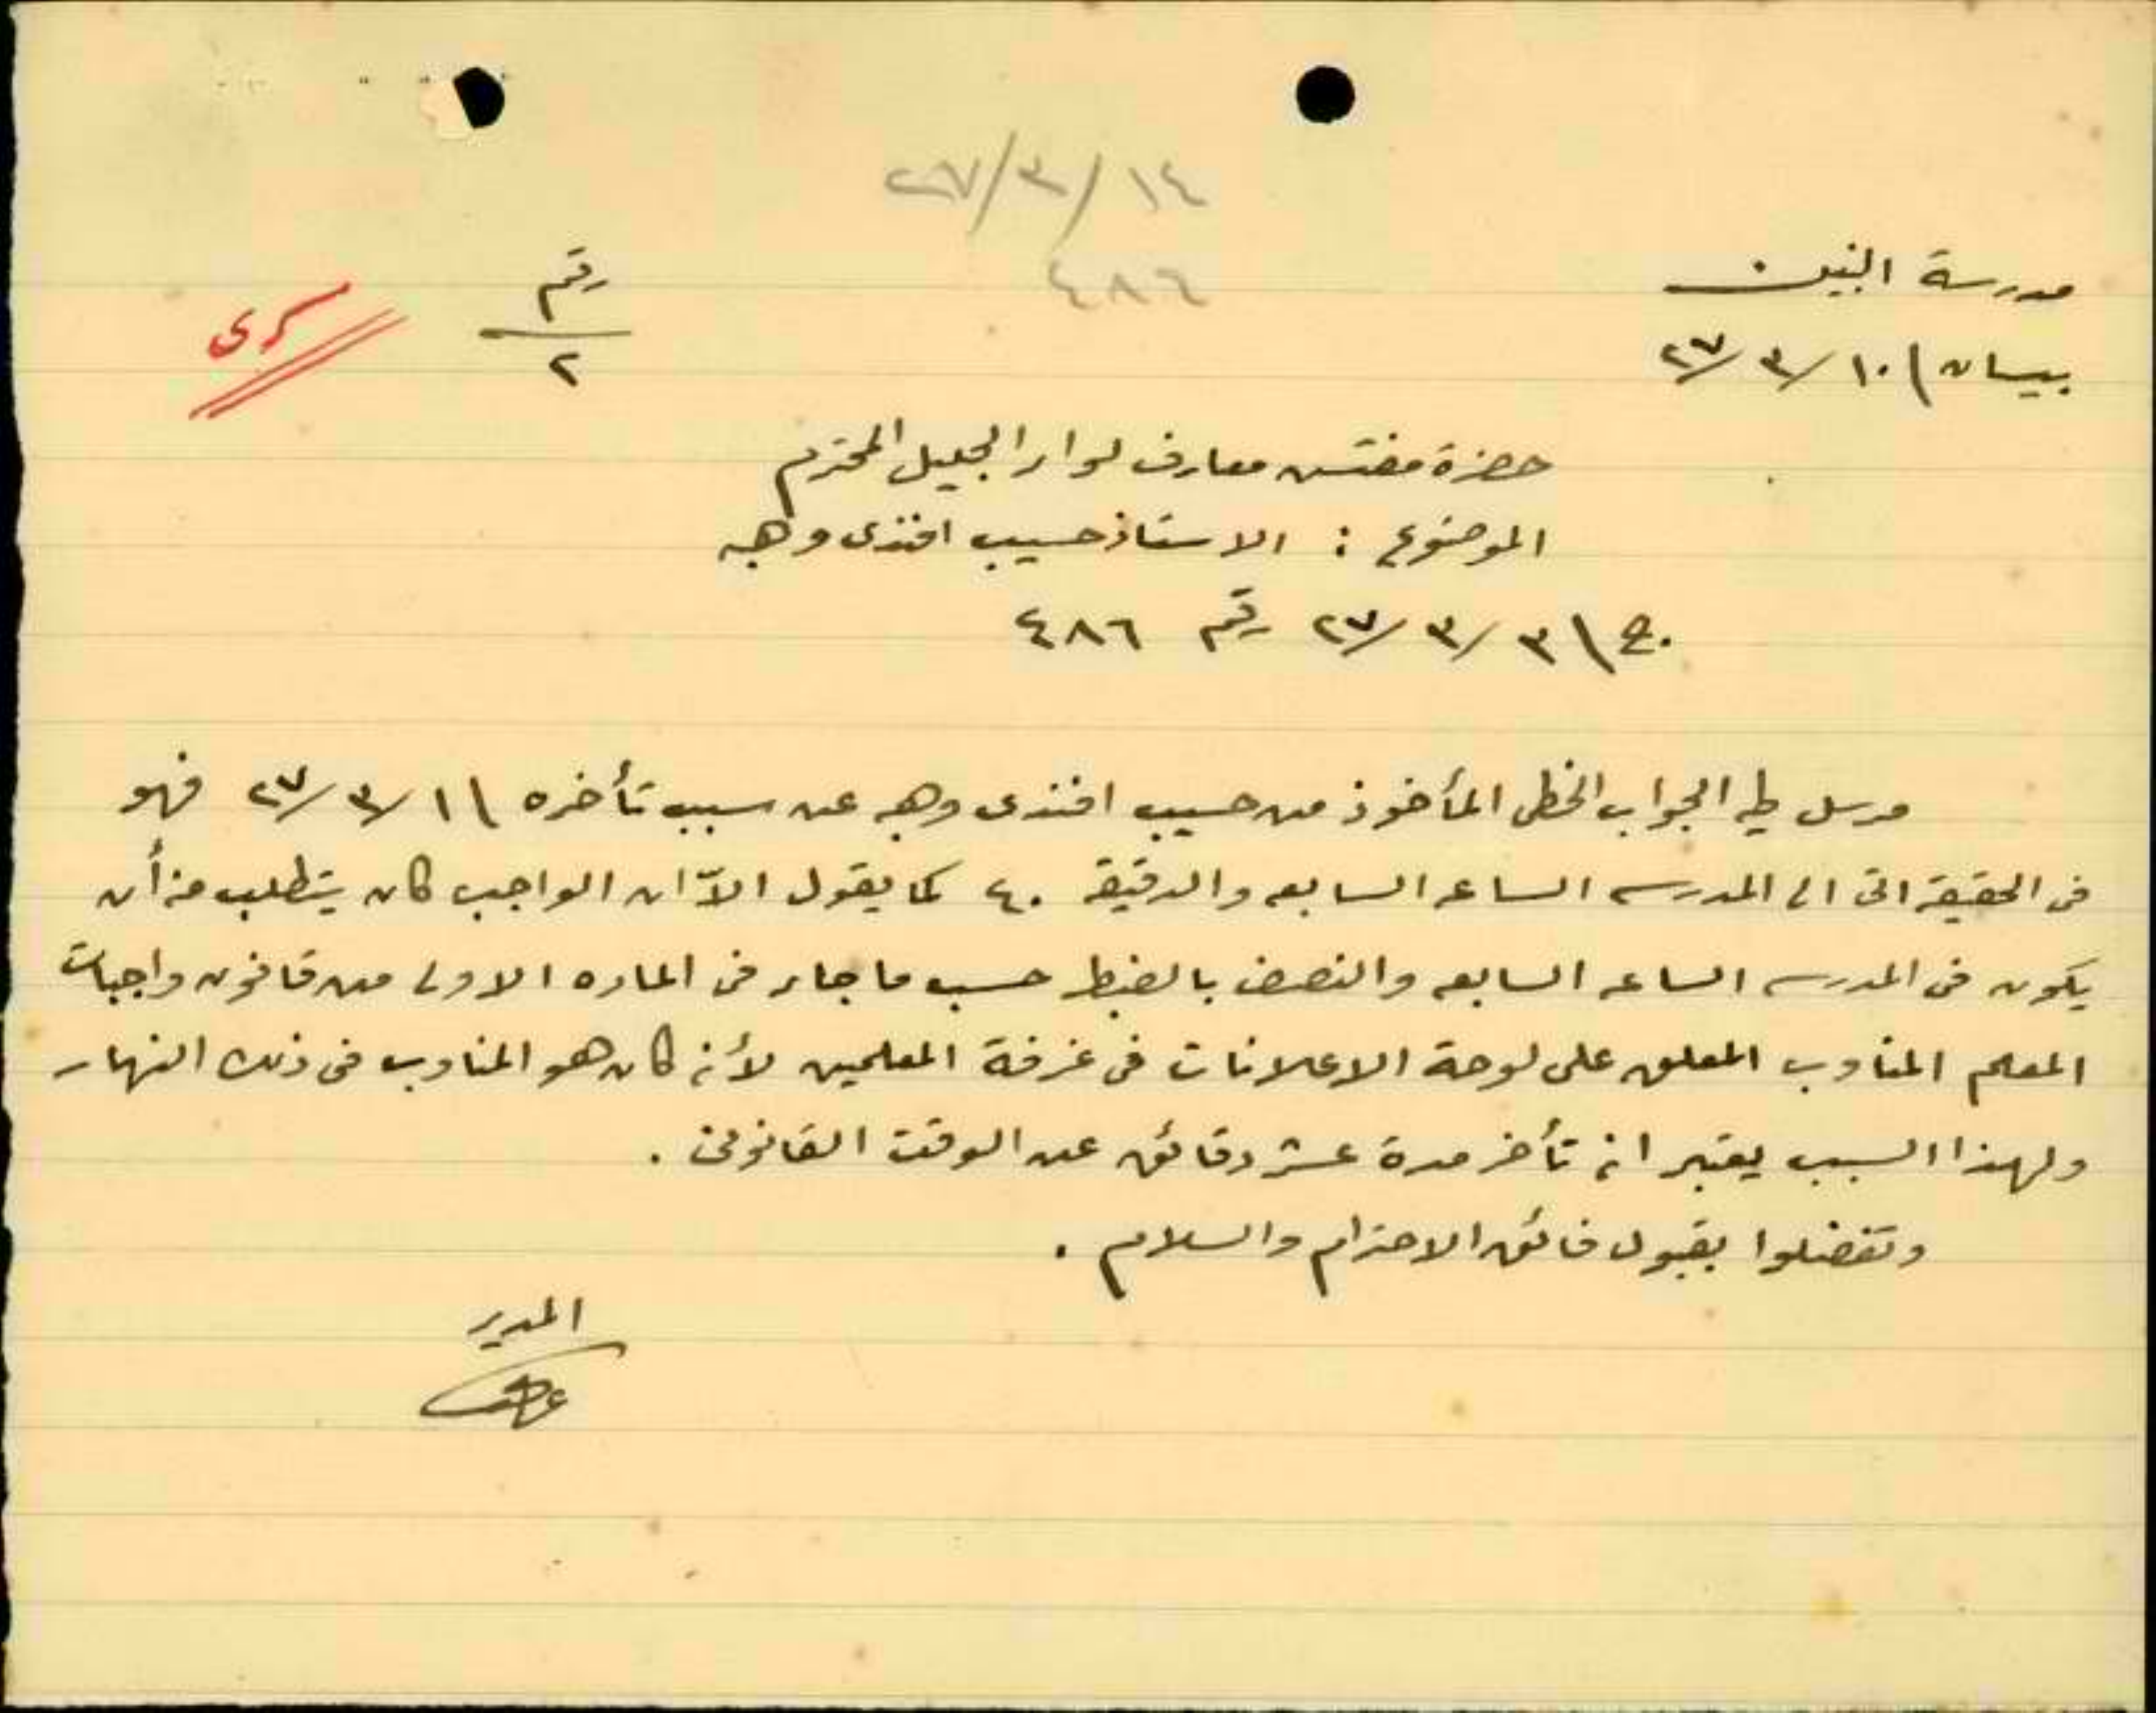 ١٤/٣/٢٧
٤٨٦
مدرسة البنين
بيسان \ ١٠/٣/٢٧
رقم
٢
سرى
حضرة مفتش معارف لواء الجليل المحترم
الموضوع : الاستاذ حسيب افندى وهبه
ج \ ٣/٣/٢٧ رقم ٤٨٦
مرسل طيه الجواب الخطى المأخوذ من حسيب افندى وهبه عن سبب تأخره \ ١/٣/٢٧ فهو
فى الحقيقة اتى الى المدرسه الساعه السابعه والدقيقه ٤٠ كما يقول الاّ ان الواجب كان يتطلب منه أن
يكون فى المدرسه الساعه السابعه والنصف بالضبط حسب ما جاء فى الماده الاولى من قانون واجبات
المعلم المناوب المعلق على لوحة الاعلانات فى غرفة المعلمين لأنه كان هو المناوب فى ذلك النهار
ولهذا السبب يعتبر انه تأخر مدة عشر دقائق عن الوقت القانونى .
وتفضلوا بقبول فائق الاحترام والسلام .
المدير